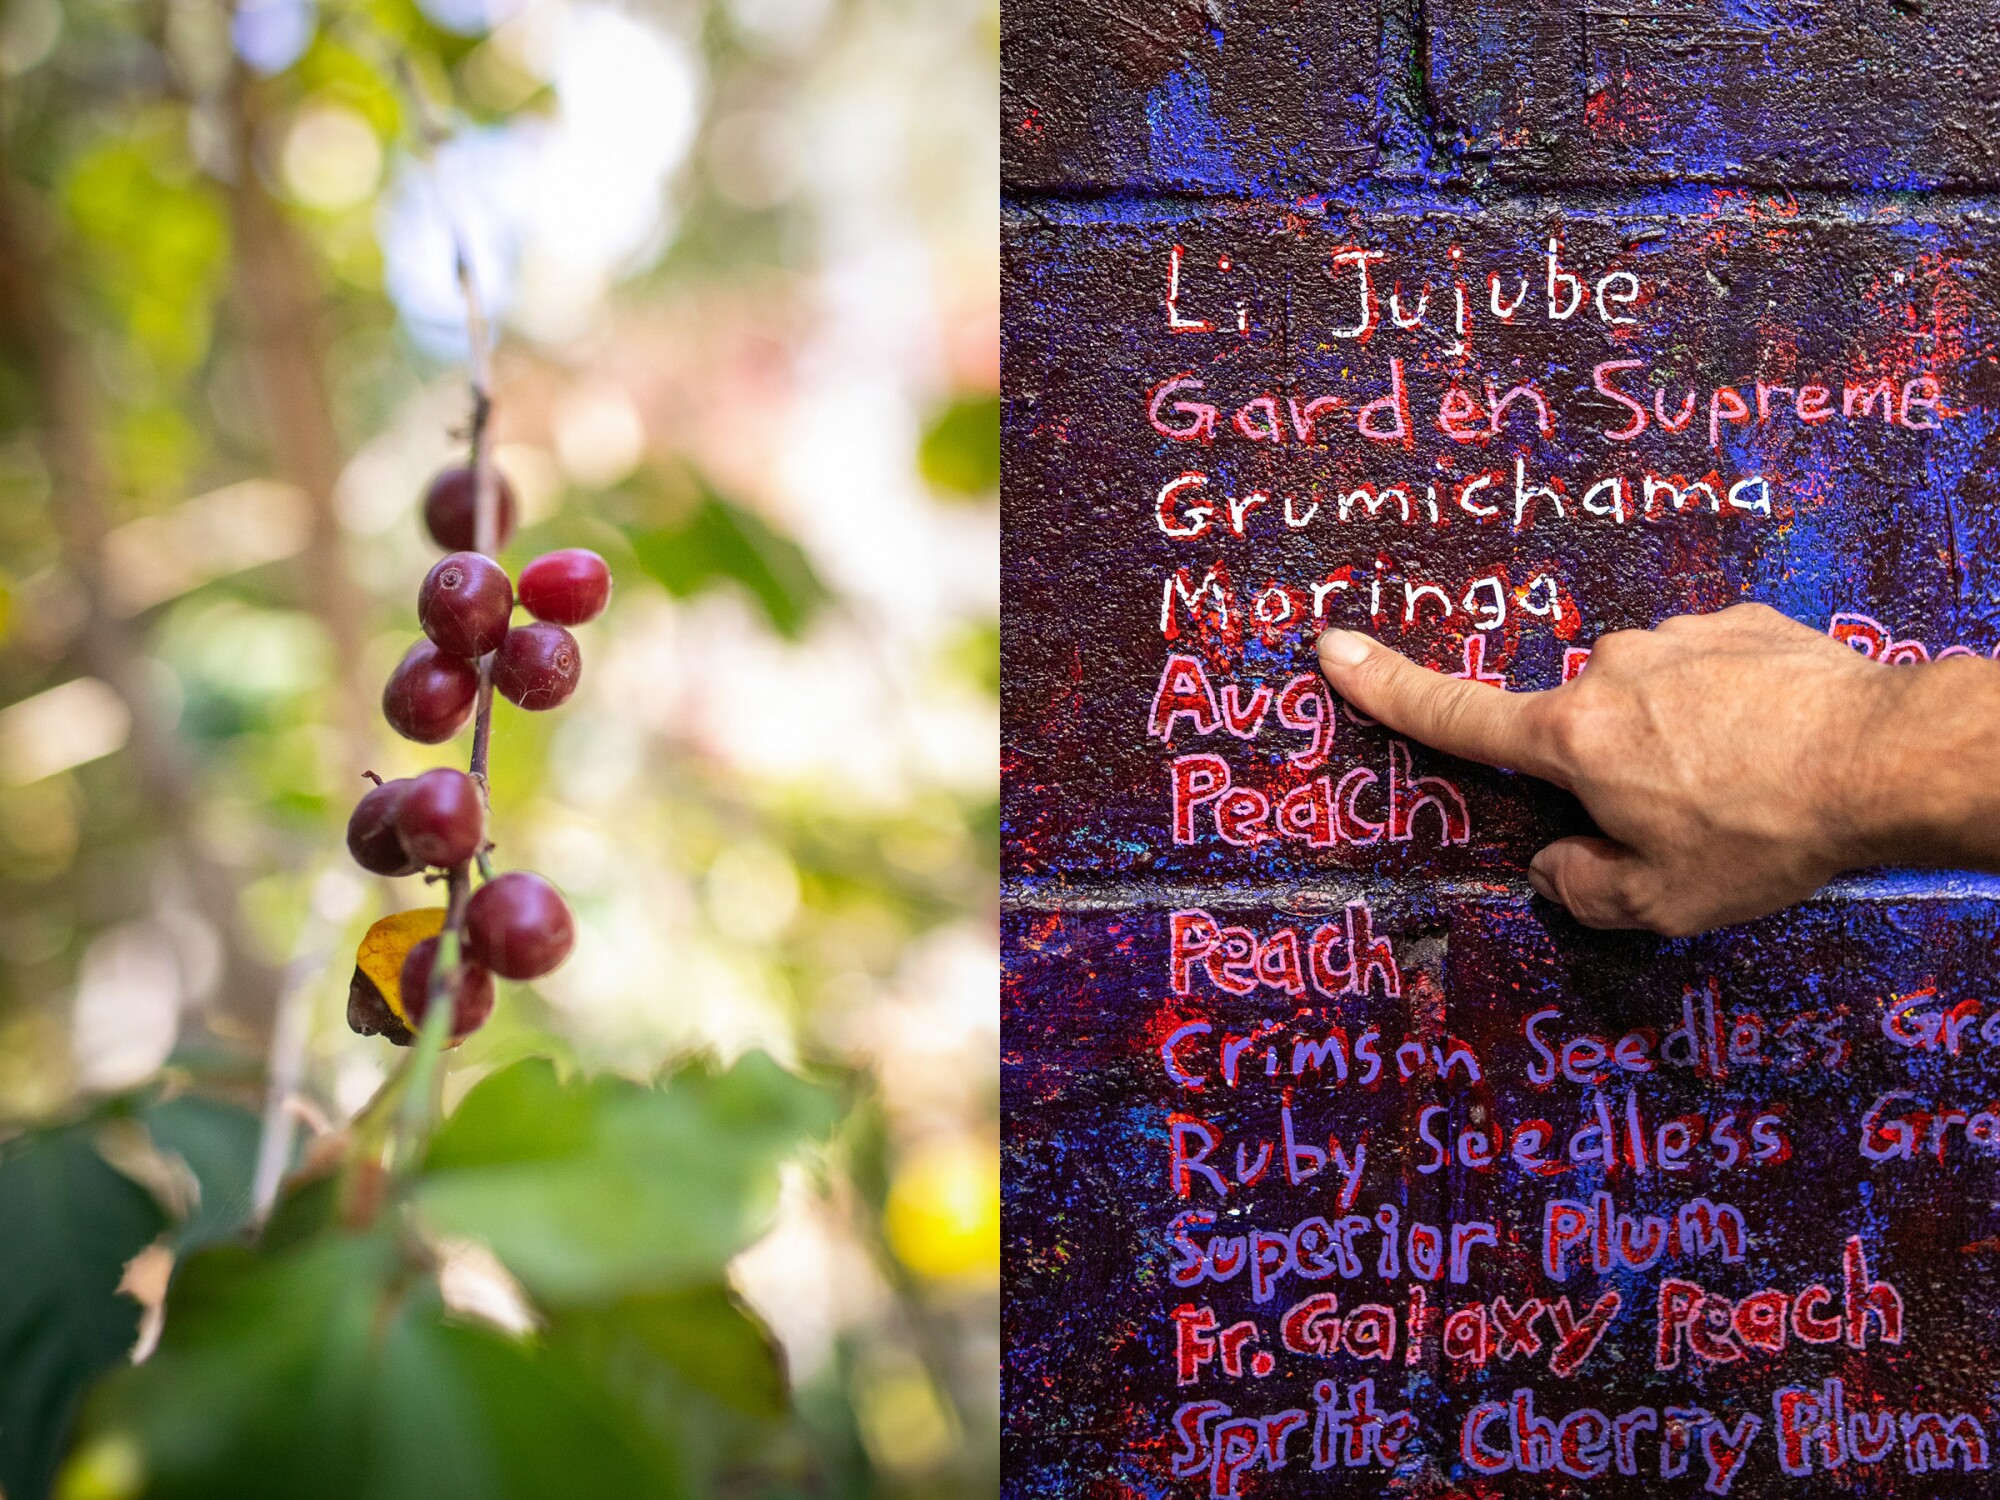 Li Jujube
Garden Supreme
Grumichama
Moringa
Peach
Peach
Crimson Seedless
Ruby Seedless
Superior Plum
Fr. Galaxy Peach
Sprite Cherry Plum